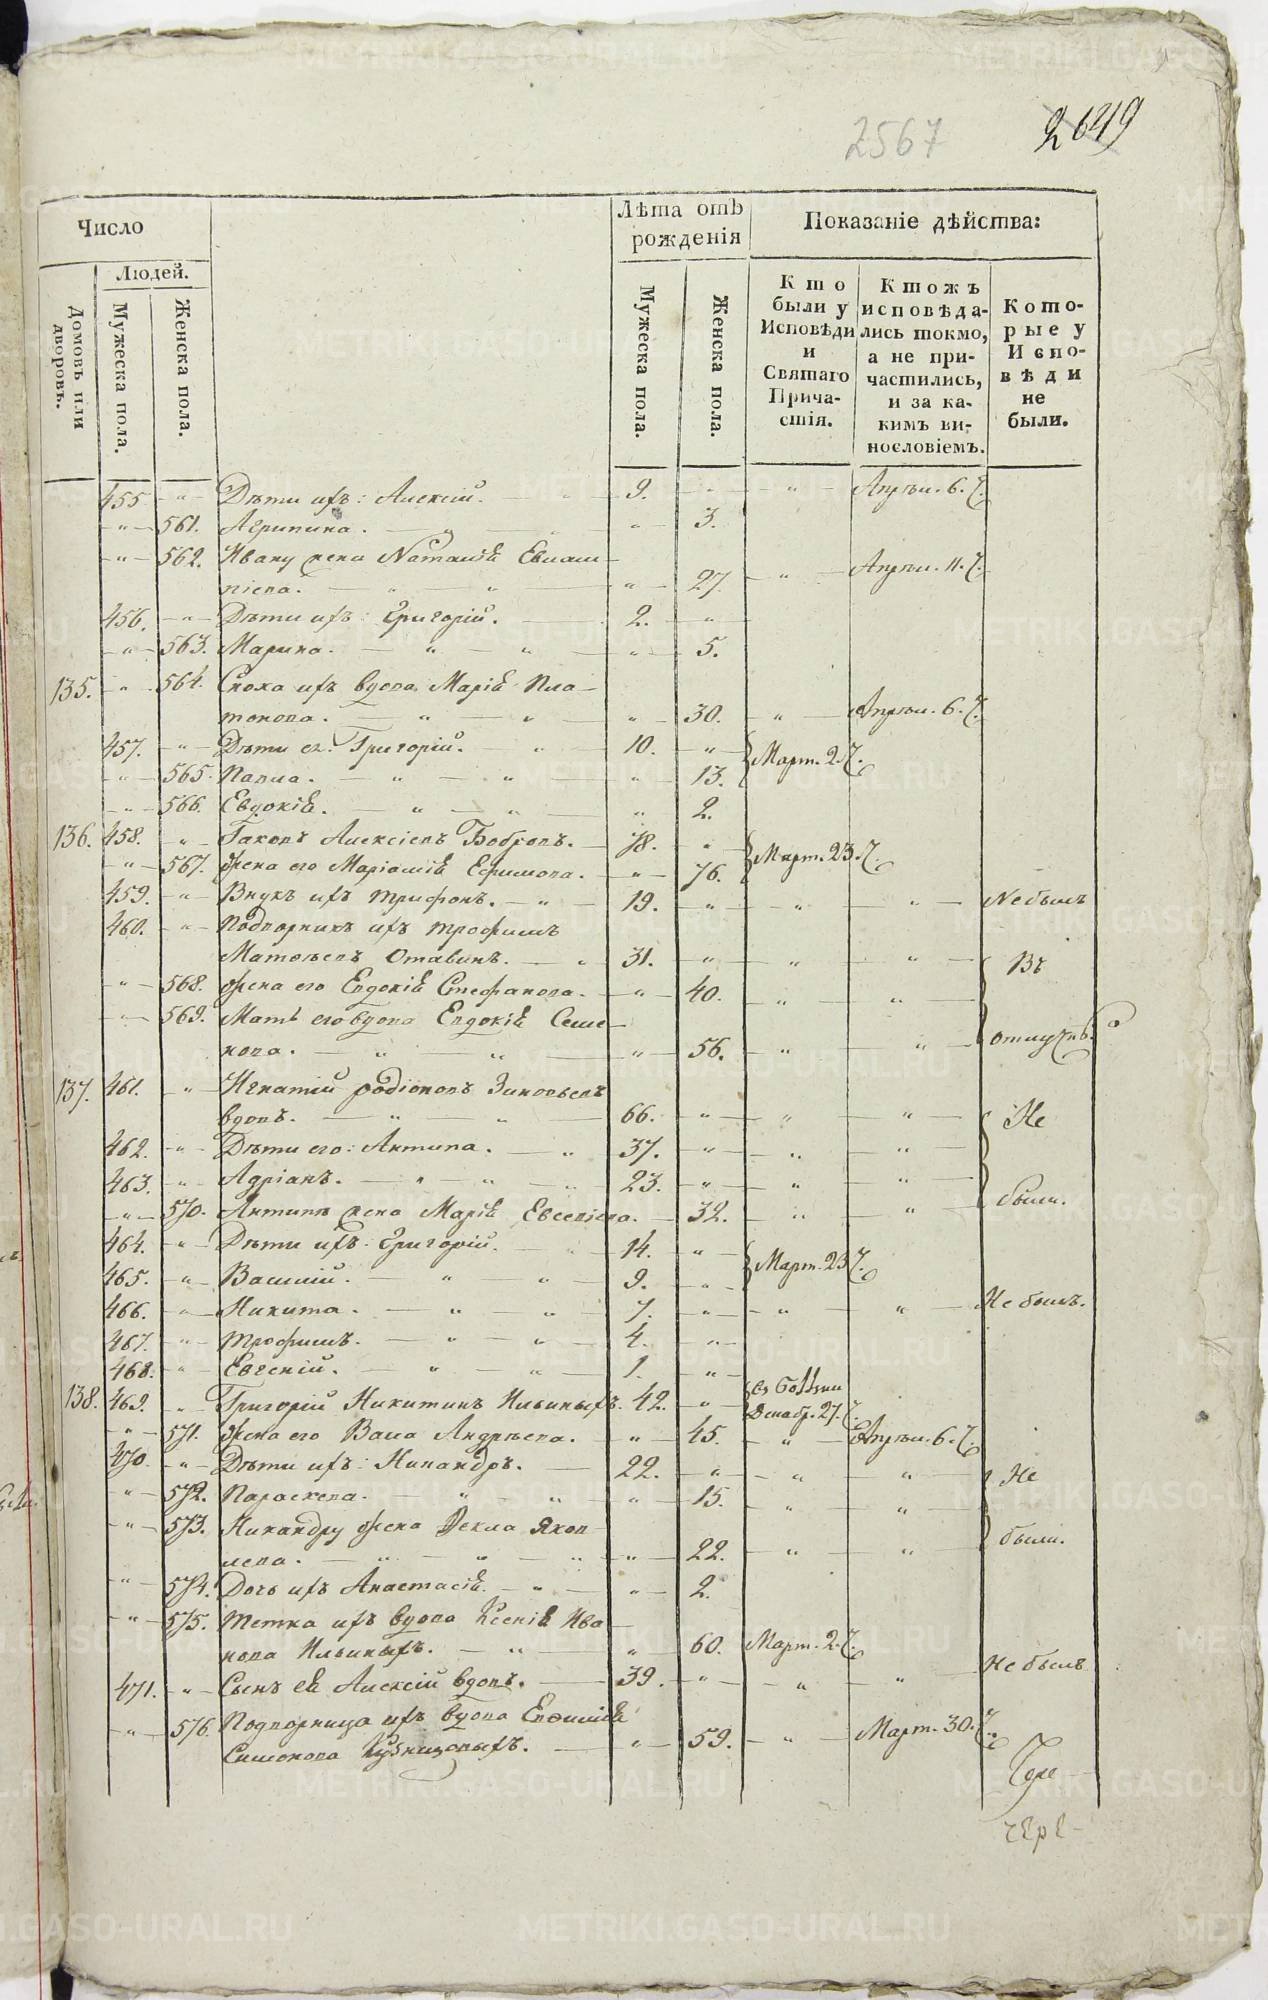 2567
2649
Число
Людей.
Домовъ или дворовъ.
Мужеска пола.
Женска пола.
Лѣта отъ рожденія
Мужеска пола.
Женска пола.
Показаніе дѣйства:
Кто были у Исповѣди и Святаго Прича-стія.
Ктожъ исповѣда-лись токмо, а не при-частились, и за ка-кимъ ви-нословіемъ.
Кото-рые у Испо-вѣди не были.
455 - " - Дѣти ихъ: Алексій. 9. - " - Апрѣл. 6.
- " - 561. Агрипина. - " - 3.
- " - 562. Ивану жена Наталія Евлам-
піева. - " - " - " - 27. - " - Апрѣл. 11.
456. - " - Дѣти ихъ: Григорій. 2. - "
- " - 563. Марина. - " - " - " - 5.
135. " 564. Сноха ихъ вдова Марія Пла-
тонова. - " - " - " - 30. - " - Апрѣл. 6.
457. - " - Дѣти ея: Григорій. - " - 10. - " - Март. 2.
- " - 565. Павла. - " - " - " - 13.
- " - 566. Евдокія. - " - " - " 2.
136. 458. " Іаковъ Алексіевъ Бобровъ. - 78. - " Март. 23.
- " - 567. Жена его Маріамія Ефимова. - " - 76.
459. - " - Внукъ ихъ Трифонъ. - " - 19. - " - " - " - Не былъ
460. - " - Подворникъ ихъ Трофимъ
Матвѣевъ Отавинъ. - " 31. - " - " - " - Въ
- " - 568. Жена его Евдокія Стефанова. - " - 40. - " - "
- " - 569. Мать его вдова Евдокія Семе-
нова. - " - " - " - 56. - " - " - отлуч
137. 461. " Игнатій Родіоновъ Зиновьевъ
вдовъ. - " - " - 66. - " - " - " - Не
462. - " - Дѣти его: Антипа. - " 37. - " - " - "
463. - " - Адріанъ. - " - " - " 23. - " - " - "
- " - 570. Антипѣ жена Марія Евсевіева. - 32. - " - " - были.
464. - " - Дѣти ихъ: Григорій. 14. - " Март. 23
465. - " - Василій. - " - " - 9. - "
466. - " - Никита. - " - " 7. - " - " - " - Не былъ.
467. - " - Трофимъ. - " - " - 4. - " -
468. - " Евгеній. - " - " - 1. - " -
138. 469. - " Григорій Никитинъ Ильиныхъ. 42. - "
Декабр. 27.
- " - 571. Жена его Васса Андрѣева. - " - 45. - " - Апрѣл. 6.
470. - " - Дѣти ихъ: Никандръ. - 22. - " - " - " - Не
- " - 572. Параскева. - " - " - " - 15. - " - "
- " - 573. Никандру жена Ѳекла Яков-
лева. - " - " - " - " - 22. - " - " - были.
- " - 574. Дочь ихъ Анастасія. - " - " - 2.
- " - 575. Тетка ихъ вдова Ксенія Ива-
нова Ильиныхъ. - " - " 60. Март. 2.
471. - " - Сынъ ея Алексій вдовъ. - 39. - " - " - " - Не былъ
- " - 576. Подворница ихъ вдова Евѳимія
Симонова Кузнецовыхъ. - " - 59. - " - Март. 30.
Чере-
чере-
METRIKI.GASO-URAL.RU